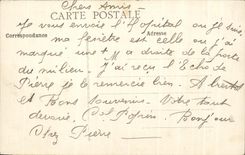 Chers Amis
CARTE POSTALE
Je vous envoie l'Hôpital ou je suis,
Correspondance Adresse
ma fenêtre est celle ou j'ai
marqué une + a droite de la porte
du milieu. J'ai reçu l'Echo de
Pierre je le remercie bien. A bientot
et Bons souvenirs. Votre tout
dévoué. Bonjour
Chez Pierre